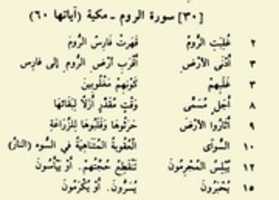 [٣٠] سورة الروم - مكية (آياتها ٦٠)
٢ غُلِبَتِ الرُّومُ قَهَرَتْ فَارِسُ الرُّومَ
٣ أَدْنَى الأَرْضِ أَقْرَبِ أَرْضِ الرُّومِ إلى فارس
٣ غَلَبِهِمْ كَوْنِهِمْ مَغْلُوبِينَ
٨ أَجَلٍ مُسَمًّى وَقْتٍ مُقَدَّرٍ أَزَلًا لِبَقَائِهَا
٩ أَثَارُوا الأَرْضَ حَرَثُوهَا وَقَلَبُوهَا لِلزِّرَاعَةِ
١٠ السُّوأَى الْعُقُوبَةُ الْمُتَنَاهِيَةُ في السُّوءِ (النَّارُ)
١٢ يُبْلِسُ الْمُجْرِمُونَ تَنْقَطِعُ حُجَّتُهُمْ. أَوْ يَيْأَسُونَ
١٥ يُحْبَرُونَ يُسَرُّونَ. أَوْ يُكْرَمُونَ